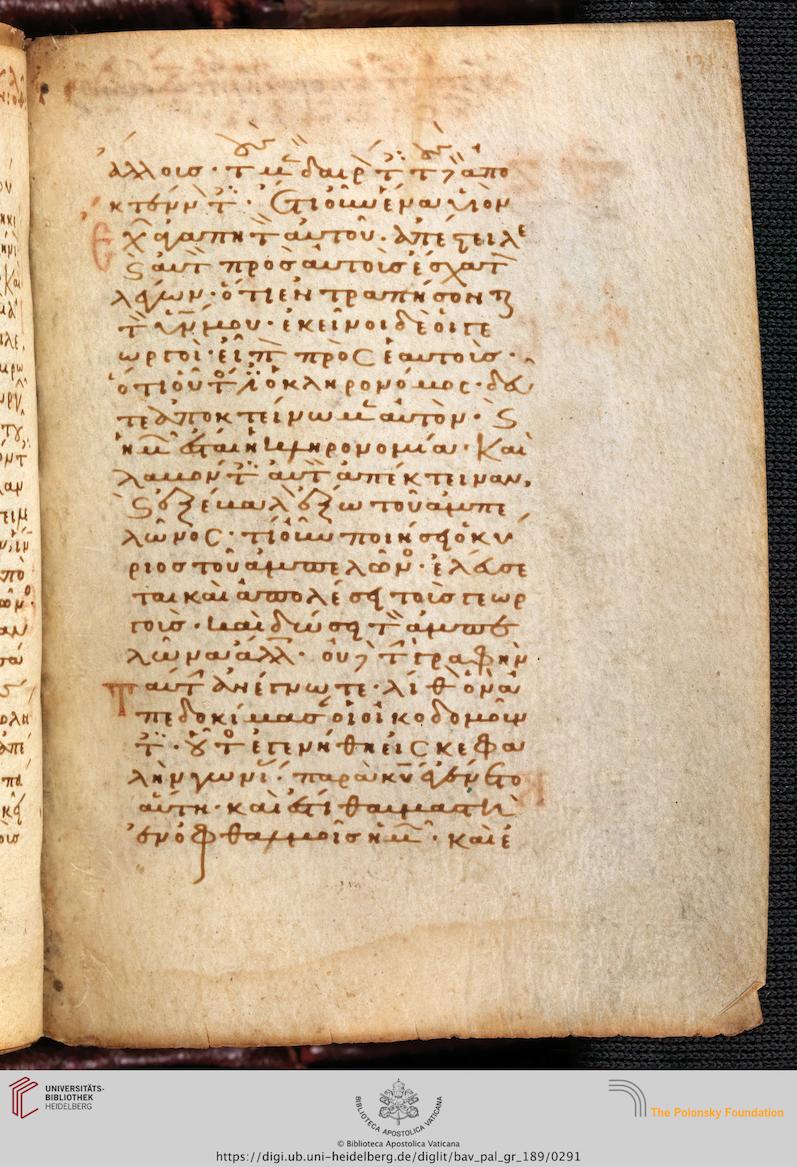 ἄλλοισ · τ μ δαιρ τ τ ἀπο
κτενν τ · ἔτι οὖν ἕνα υἱὸν
ἔχ ἀγαπητ αὐτοῦ · ἀπέστειλε
ϗ αὐτ πρὸσ αὐτοὺσ ἔσχατ
λέγων · ὅτι ἐντραπήσοντ
τ υἱόν μου · ἐκεῖνοι δὲ οἱ γε
ωργοὶ · εἶπ πρὸς ἑαυτοὺσ ·
ὅτι οὗτ ὁ κληρονόμος · δεῦ
τε ἀποκτείνωμ αὐτὸν · ϗ
ἡμ ἔσται ἡ κληρονομία · Καὶ
λαβόντ αὐτ ἀπέκτειναν,
ϗ ἐξέβαλ ἔξω τοῦ ἀμπε
λῶνος · τί οὖν ποιήσει ὁ κύ
ριοσ τοῦ ἀμπελῶν · ἐλεύσε
ται καὶ ἀπολέσει τοὺσ γεωρ
γοὺσ · καὶ δώσει τ ἀμπε
λῶνα ἄλλ · οὐδ τ γραφὴν
ταύτ ἀνέγνωτε · λίθον ὃν ἀ
πεδοκίμασ οἱ οἰκοδομοῦν
τ · οὗτ ἐγενήθη εἰς κεφα
λὴν γωνί · παρὰ κυ ἐγένετο
αὕτη · καὶ ἔστι θαυμαστὴ
ἐν ὀφθαλμοῖσ ἡμ · καὶ ἐ
UNIVERSITÄTS-
BIBLIOTHEK
HEIDELBERG
BIBLIOTECA APOSTOLICA VATICANA
The Polonsky Foundation
© Biblioteca Apostolica Vaticana
https://digi.ub.uni-heidelberg.de/diglit/bav_pal_gr_189/0291